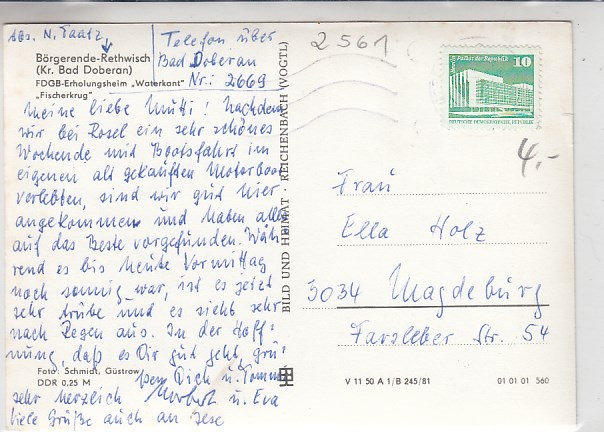 Abs. N. Taatz
Telefon über
Bad Doberan
Nr.: 2669
Börgerende-Rethwisch
(Kr. Bad Doberan)
FDGB-Erholungsheim „Waterkant"
„Fischerkrug"
Meine liebe Mutti! Nachdem
wir bei Rosel ein sehr schönes
Wochende mit Bootsfahrt im
eigenen alt gekauften Motorboot
verlebten, sind wir gut hier
angekommen und haben alles
auf das Beste vorgefunden. Wäh-
rend es bis heute Vormittag
noch sonnig war, ist es jetzt
sehr trübe und es sieht sehr
nach Regen aus. In der Hoff-
nung, daß es Dir gut geht, grü-
ßen Dich u. Tommi
sehr herzlich Norbert u. Eva
Viele Grüße auch an
Foto: Schmidt, Güstrow
DDR 0,25 M
BILD UND HEIMAT REICHENBACH (VOGTL)
2561
Palast der Republik
10
DEUTSCHE DEMOKRATISCHE REPUBLIK
4,-
Frau
Ella Holz
3034 Magdeburg
Farsleber Str. 54
V 11 50 A 1/B 245/81
01 01 01 560